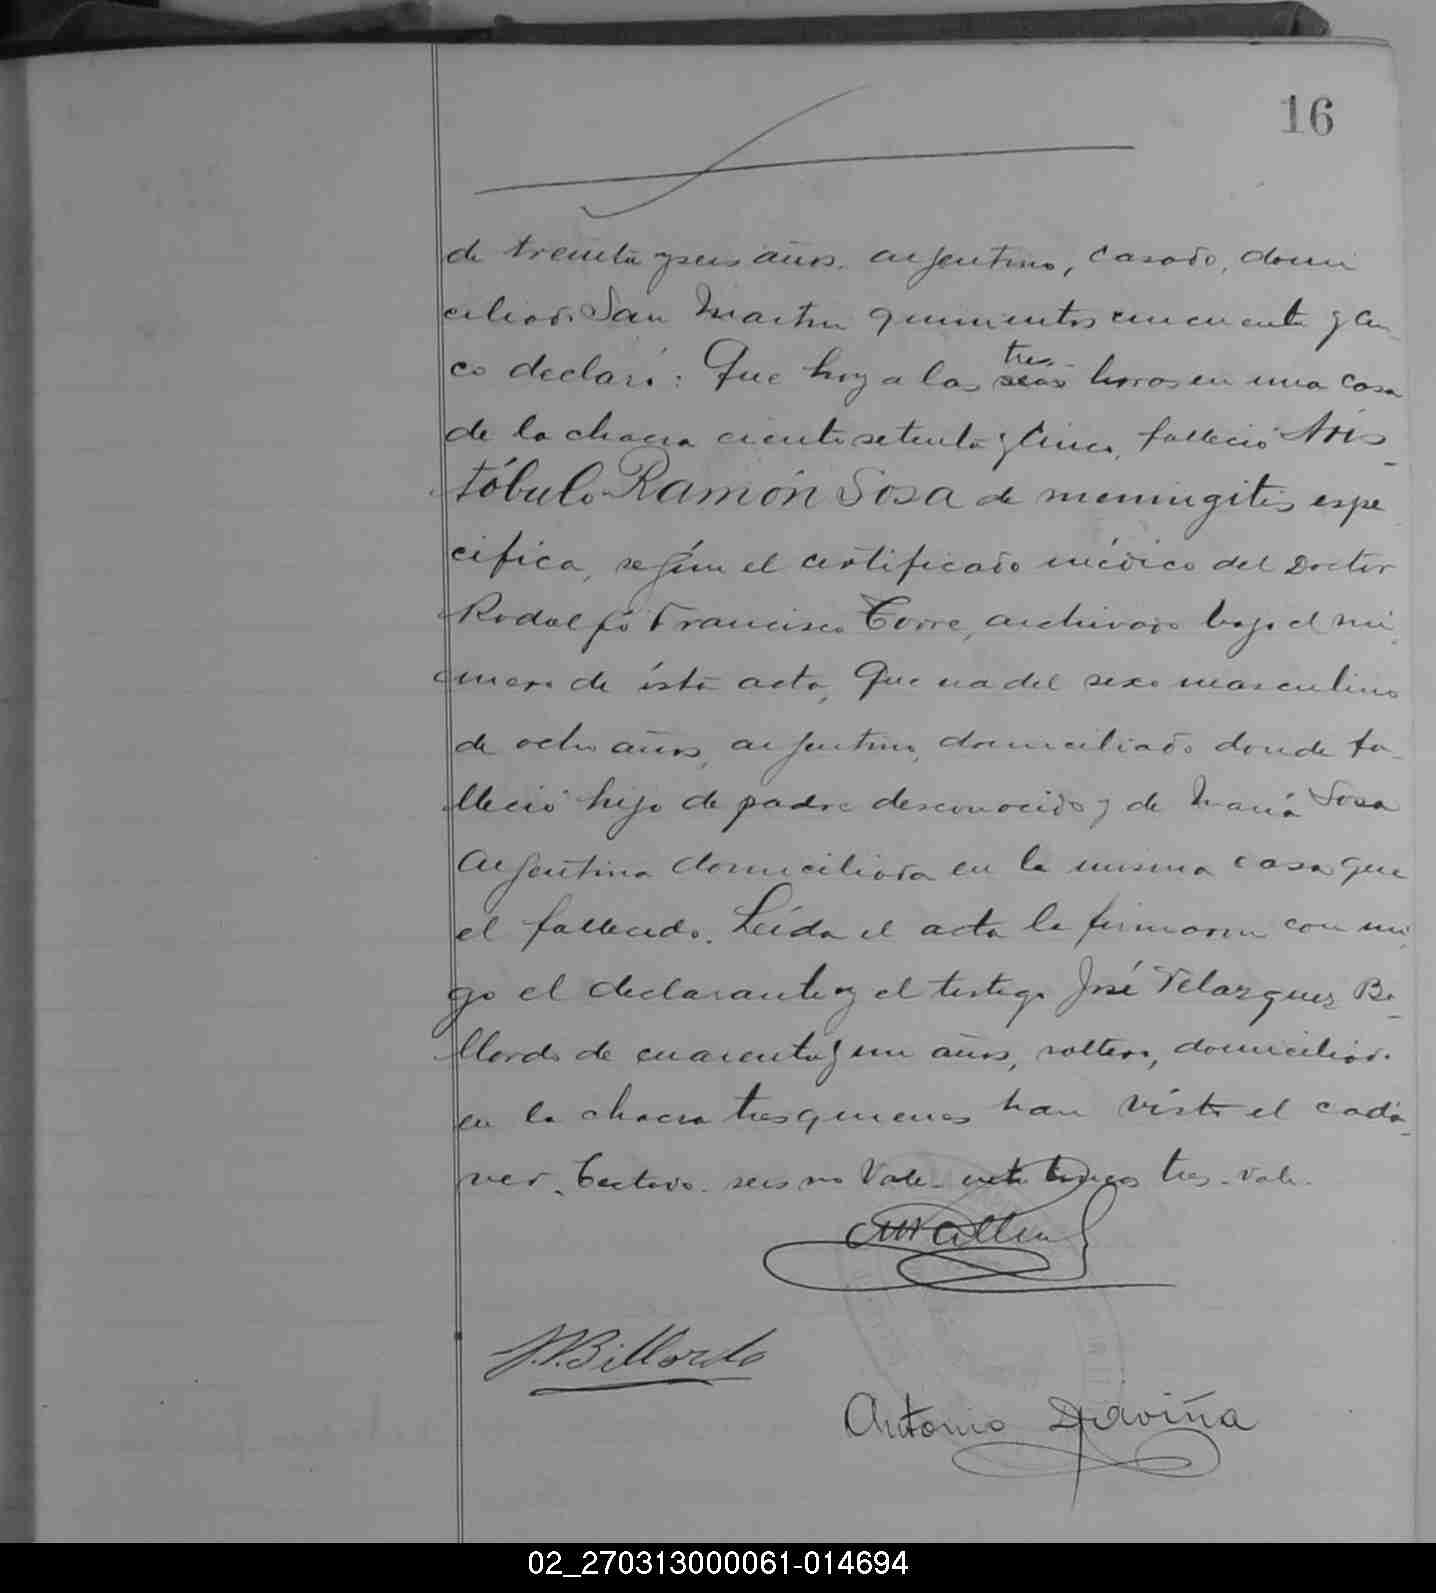 16
de treinta y seis años, argentino, casado, domi
ciliado San Martin quinientos cincuenta y cin-
co declaró: Que hoy a las seis tres horas en una casa
de la chacra ciento setenta y cinco, falleció Aris-
tóbulo Ramón Sosa de meningitis espe
cifica, según el certificado médico del Doctor
Rodolfo Francisco Torre, archivado bajo el nú
mero de ésta acta, Que era del sexo masculino
de ocho años, argentino, domiciliado donde fa-
lleció hijo de padre desconocido y de María Sosa
argentina domiciliada en la misma casa que
el fallecido. Leída el acta la firmaron con mi
go el declarante y el testigo José Velazquez Bi-
llordo de cuarenta y un años, soltero, domiciliado
en la chacra tres quienes han visto el cadá-
ver. Testado. seis no Vale. entre lineas tres. vale.
J.V.Billordo
Antonio Daviña
02_270313000061-014694